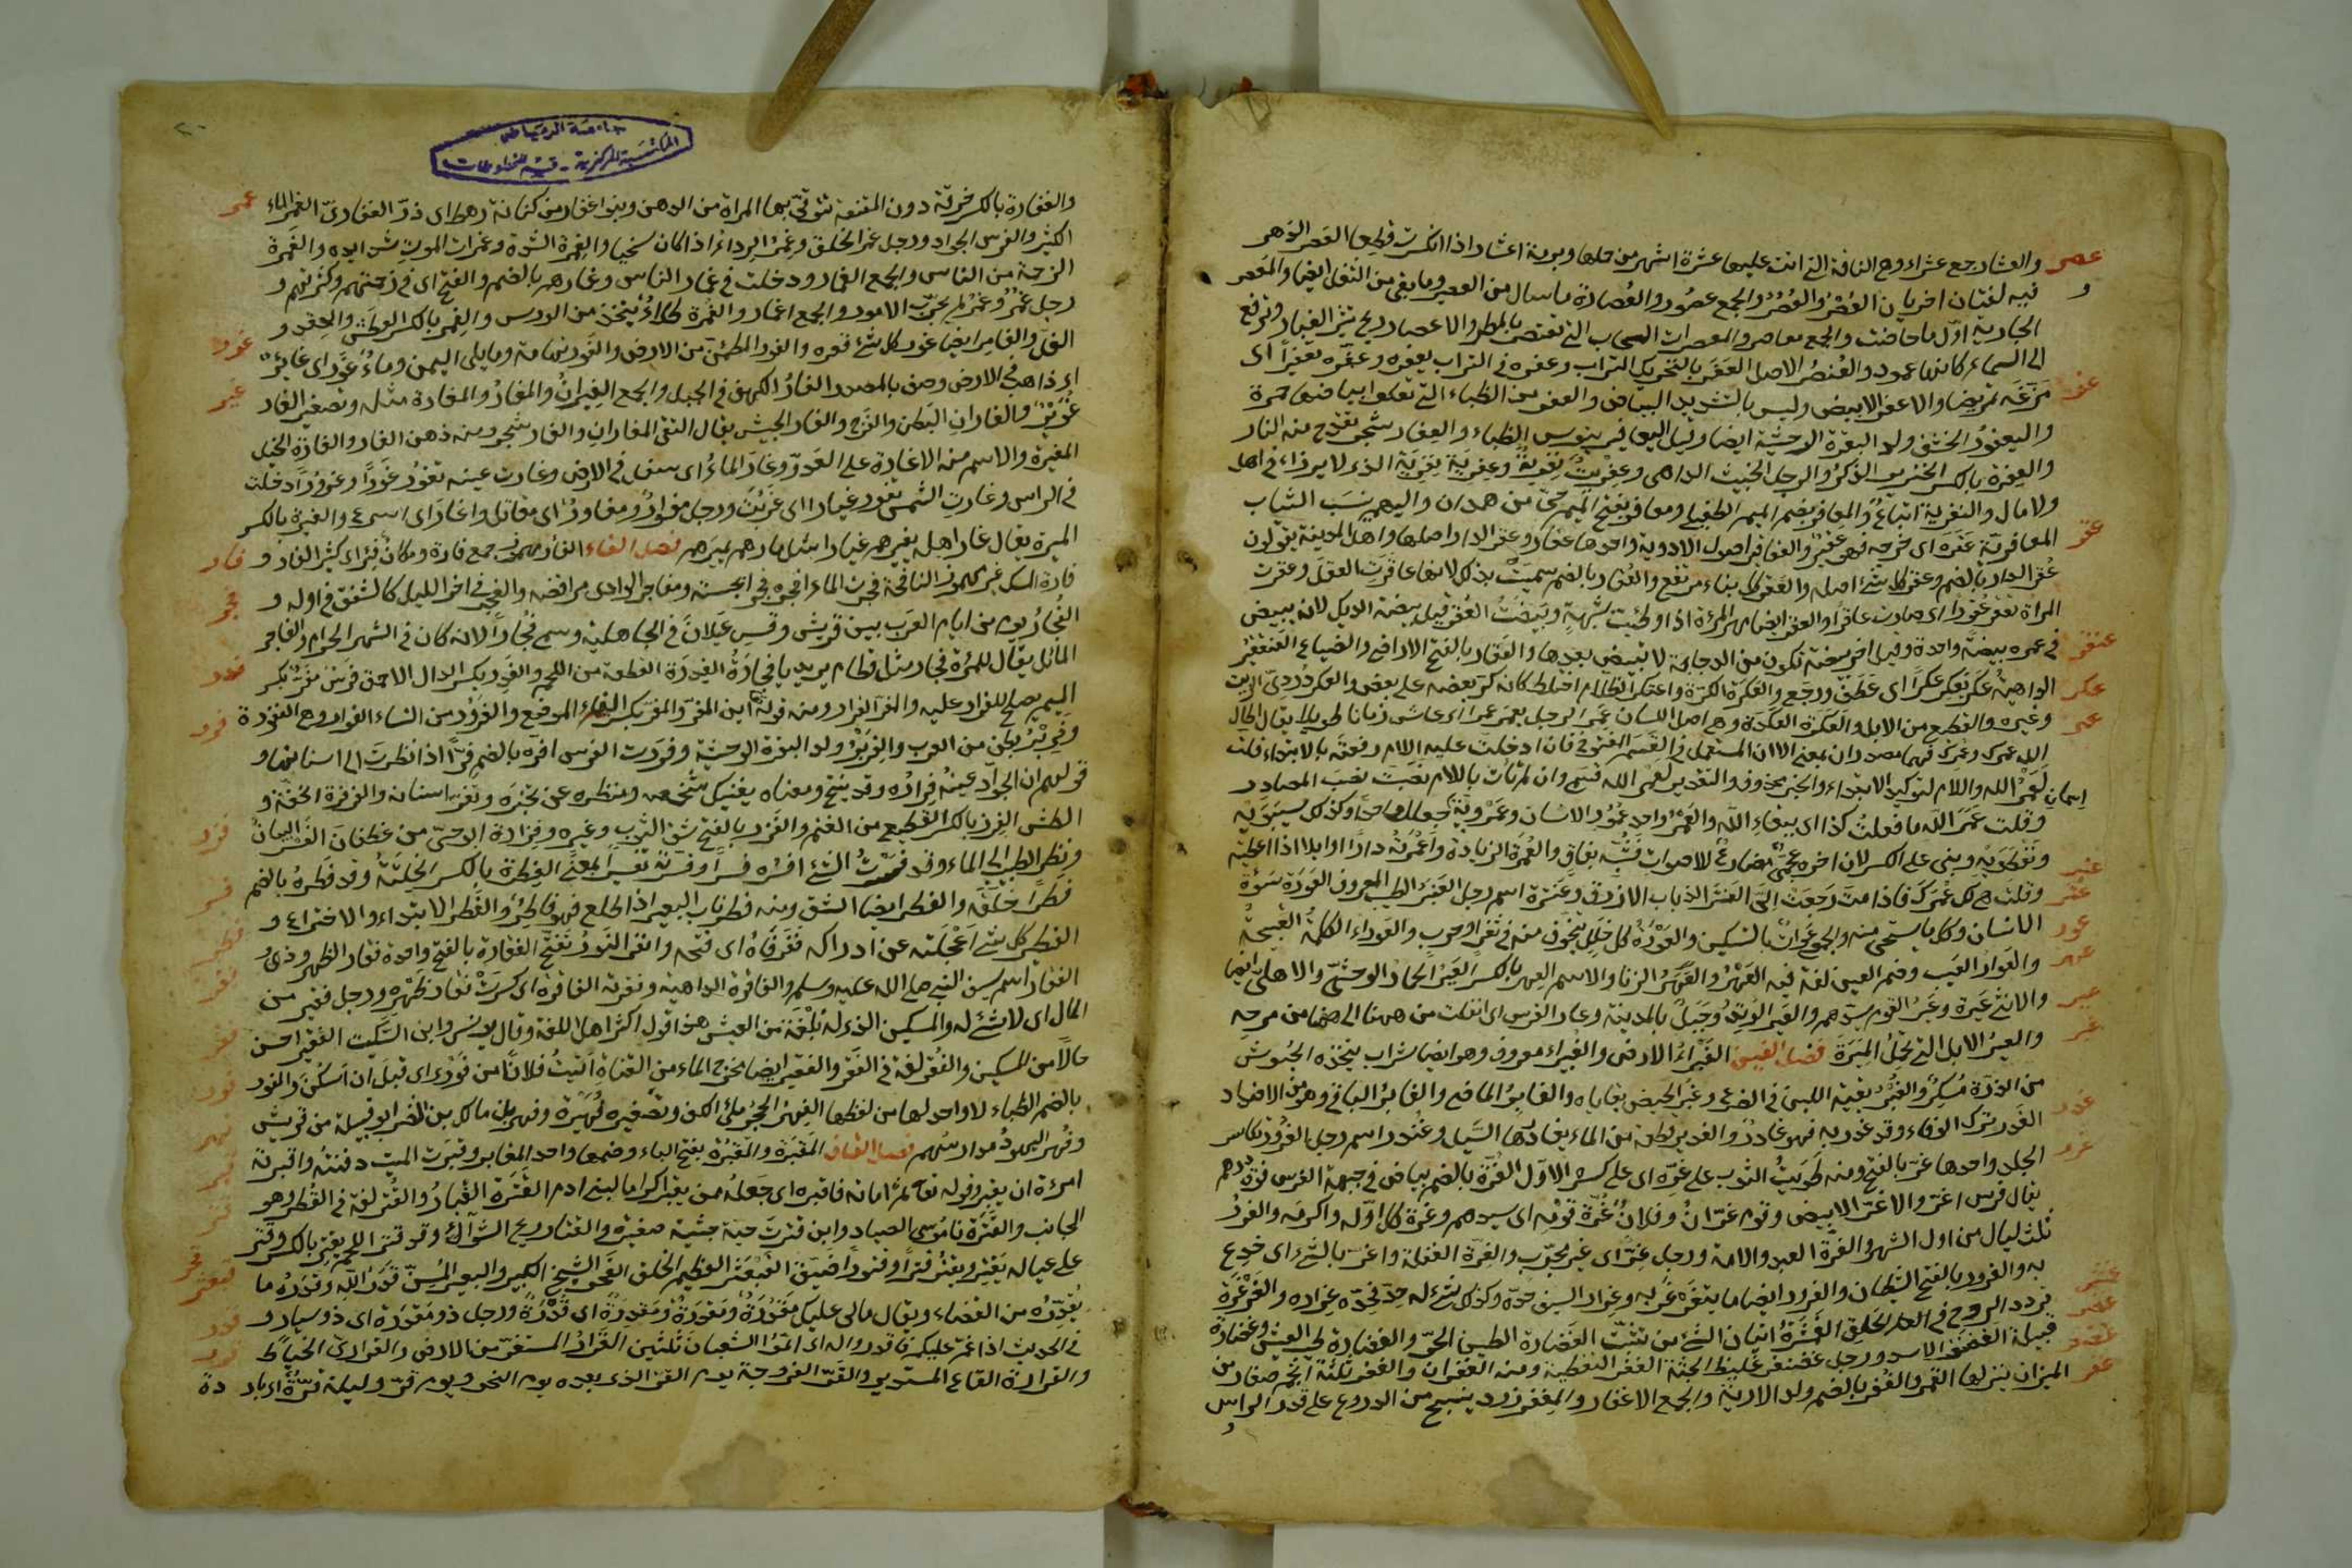 والعشار جمع عشراء وهى الناقة التى اتت عليها عشرة اشهر من حملها وبرمة اعشار اذا انكسرت قطعا العصر الدهر
عصر
فيه لغتان اخريان العُصْر والعُصُر والجمع عصُور والعُصارة ما سال من العصير وما بقى من الثفل ايضا والمعصر
الجارية اوّل ما حاضت والجمع معاصر والمعصرات السحاب التى تعتصر بالمطر والاعصار ريح تثير الغبار وترتفع
الى السماء كانها عمود والعُنصُر الاصل العَفَر بالتحريك التراب وعفره فى التراب يعفره وعفّره تعفيرا اى
عفر
مرّغه تمريغا والاعفر الابيض وليس بالشديد البياض والعفر من الظباء التى تعلو بياضها حمرة
واليعفورُ الخشف وولد البقرة الوحشية ايضا وقيل اليعافير تيوس الظباء والعِفار شجر تقدح منه النار
والعِفرة بالكسر الخنزير الذكر والرجل الخبيث الداهى وعِفْريتٌ نِفريتٌ وعِفرية نِفرية الذى لا يرزاء فى اهل
ولا مال والنفرية اتباعٌ والمعافر بضم الميم الطفيلى ومعافر بفتح الميم حىّ من همدان واليهم تنسب الثياب
المعافريّة عَقَره اى جرحه فهو عقيرٌ والعقاقير اصول الادوية واحدها عقّار وعقر الدار اصلها واهل المدينة يقولون
عقر
عُقر الدار بالضم وعقر كل شىء اصله والعَقر كل بناء مرتفع والعُقار بالضم سميتْ بذلك لانها عاقرت العقل وعقرت
المراة تعقر عُقرا اى صارت عاقرا والعقر ايضا مهر المرأة اذا وطئت بشبهةٍ وبَيضتُ العُقر قيل بيضة الديك لانه يبيض
فى عمره بيضة واحدة وقيل اخر بيضة تكون من الدجاجة لا تبيض بعدها والعَقار بالفتح الاراضى والضياع العَنقفيرُ
عنقر
الداهية عكر يَعكِر عكرًا اى عَطَف ورجَع والعَكرَة الكَرّة واعتكر الظلام اختلط كانه كرّ بعضه على بعض والعكر دُردىّ الزيت
عكر
وغيره والقطيع من الابل والعَكرَة العكدَة وهى اصل اللسان عَمِرَ الرجل يعمر عمرا اى عاش زمانا طويلا يقال اطال
عمر
الله عمرك وعُمرك فهما مصدران بمعنى الا ان المستعمل فى القسم الفتوح فان ادخلت عليه اللام رفعته بالابتداء قلت
لَعَمْرُ الله واللام لتوكيد الابتداء والخبر محذوف والتقدير لعمر الله قسمى وان لم تأت باللام نصبت نصب المصادر
وقلت عَمْرَ الله ما فعلتُ كذا اى ببقاء الله والعَمْر واحد عُمُور الاسنان وعَمْرَوَيْه جعلا اسما واحدا وكذلك سيبَوَيْه
ونَفْطَوَيْه وبنى على الكسر لان اخره عجمىّ مضارع للاصوات فشُبّه بغاق والعُمْرة الزيادة واعْمَرْتُه دارًا او ابلا اذا اعطيته
وقلت هى لك عُمرَك فاذا متَّ رجَعتْ الىَّ العنتر الذباب الازرق وعَنترة اسم رجل العَنبر الطيب المعروف العَورَة سَوْءة
عنبر
عنتر
الانسان وكل ما يستحيى منه والجمع عَوْرات بالتسكين والعَوْرَة كل خلل يتخوّف منه فى ثغر او حرب والعَوراء الكلمة القبيحة
عور
والعَوار العيب وضم العين لغة فيه العَهْرُ والعَهَرُ الزنا والاسم العِهر بالكسر العَيْر الحمار الوحشىّ والاهلىّ ايضا
عهر
والانثى عَيرة وعَيْر القوم سيّدهم والعَير الوَتِدُ وجَبَلٌ بالمدينة وعار الفرس اى انفلت من ههنا الى ههنا من مرحه
عير
والعِير الابل التى تحمل المِيرَة فصل الغين الغَبْراءُ الارض والغُبَيراء معروف وهو ايضا شراب يتخذه الحبُوش
غبر
من الذرَة مُسْكِرٌ والغُبْر بقية اللبن فى الضرع وغُبّر الحيض بقاياه والغابرُ الماضى والغابرُ الباقى وهو من الاضداد
الغَدر ترك الوفاء وقد غدر به فهو غادرٌ والغدير قطعة من الماء يغادرها السَّيل وغُندَر اسم رجل الغُرور مكاسر
غدر
الجلد واحدها غَرّ بالفتح ومنه طويتُ الثوب على غَرّه اى على كسره الاوّل الغُرّة بالضم بياض فى جبهة الفرس فوق الدرهم
غرر
يقال فرس اغرّ والاغرّ الابيض وقوم غُرّانٌ وفلان غُرّة قومه اى سيدهم وغُرة كل شىء اوّله واكرمه والغررُ
ثلث ليال من اول الشهر والغرّة العبد والامة ورجل غِرّ اى غير مجرّب والغِرّة الغفلة واغترّ بالشىء اى خدع
به والغرور بالفتح الشيطان والغرور ايضا ما يتغرغر به وغرار السيف حدّه وكذلك كل شىء له حدّ فحدّه غراره والغرغرة
تردد الروح فى الحلق الغَشْمَرَةُ اتيان الشىء من غير تثبّت الغَضارة الطين الحرّ والغضارة طيب العيش وغضارة
قبيلة الغضنفر الاسد ورجل غضنفر غليظ الجثة الغَفر التغطية ومنه الغفران والغفر ثلثة انجم صغار من
الميزان ينزلها القمر والغُفر بالضم ولد الاروية والجمع الاغفار والمِغفر زرد ينسج من الدروع على قدر الراس
غفر
جامعة الرياض
المكتبة المركزية - قسم المخطوطات
والغِفارة بالكسر خرقة دون المقنعة تتوقى بها المراة من الدهن وبنوا غفار من كنانة رهط ابى ذرّ الغفارىّ الغَمْر الماء
غمر
الكثير والفرس الجواد ورجل غَمْر الخلق وغَمْر الرداء اذا كان سخيا والغمرة الشدّة وغمرات الموت شدائده والغَمْرة
الزحمة من الناس والجمع الغمار ودخلت فى غمار الناس وغمارهم بالضم والفتح اى فى زحمتهم وكثرتهم و
رجل غُمْرٌ وغَمْرٌ لم يجرّب الامور والجمع اغمار والغُمْرة طلاءٌ يتخذ من الورس والغِمر بالكسر العطش والحقد و
الغلّ والغامر ايضا غور كل شىء قعره والغور المطمئنّ من الارض والغور تهامة وما يلى اليمن وماءٌ غَورٌ اى غائر
غور
اى ذاهب فى الارض وصف بالمصدر الغارُ الكهف فى الجبل والجمع الغِيرانُ والمغارُ والمغارة مثله وتصغير الغار
غُوَيْرٌ والغاران البطن والفرج والغار الجيش يقال التقى الغاران والغار شجر ومنه دهن الغار والغارة الخيل
غير
المغيرة والاسم من الاغارة على العدوّ وغارَ الماءُ اى سفل فى الارض وغارت عينه تغورُ غَورًا وغُؤورًا دخلت
فى الراس وغارت الشمس تغور غيارا اى غربت ورجل مغوارٌ ومغاورٌ اى مقاتل واغار اى اسرع والغِيرة بالكسر
الميرة يقال غار اهله يغيرهم غيارا مثل مارهم يميرهم فصل الفاء الفأر مهموز جمع فارة ومكان فئر اى كثير الفار و
فار
فارة المسك غير مهموز النافجة فجرت الماء افجره فجرا انبجسته ومفاجر الوادى مرافضه والفجر فى اخر الليل كالشفق فى اوله و
فجر
الفُجارُ يوم من ايام العرب بين قريش وقيس عَيلانَ فى الجاهلية وسمى فُجّارا لانه كان فى الشهر الحرام والفاجر
المائل يقال للمرأة فَجارِ مثل قطام يريد يا فاجِرَةُ الفِدرَة القطعة من اللحم والفَدِر بكسر الدال الاحمق فرسٌ مِفَرّ بكسر
فدر
الميم يصلح للفرار عليه والفرّ الفرار ومنه قوله اين المفرّ والمفرّ بكسر الفاء الموضع والفَرُور من النساء النوار وهى النفورة
فرر
وفَريرٌ بطن من العرب والفَريرُ ولد البقرة الوحشية وفررت الفرس افرّه بالضم فرًّا اذا نظرت الى اسنانها و
قولهم ان الجوادَ عينُه فِراره وقد يفتح ومعناه يغنيك شخصه ومنظره عن تختبره وتفرّ اسنانه والفرفرة الخفّة و
الطيش الفِزر بالكسر القطيع من الغنم والفَزر بالفتح شق الثوب وغيره وفزارة ابو حىّ من غطفان الفَسْر البيانُ
فزر
ونظر الطبيب الى الماء وقد فسرتُ الشىء افسره فسرًا وفسّرته تفسيرا بمعنًى الفِطرة بالكسر الخِلقَةُ وقد فَطره بالضم
فسر
فَطْرًا خَلَقَه والفَطر ايضا الشق ومنه فطر ناب البعير اذا طلع فهو فاطرٌ والفَطر الابتداء والاختراع و
الفطير كل شىء اعْجَلتَه عن ادراكه فَغَرفاهُ اى فتحه وانفغر النَّورُ تفتّح الفقارة بالفتح واحدة فقار الظهر وذو
فطر
فغر
الفقار اسم سيف النبى صلى الله عليه وسلم والفاقرة الداهية وفقرته الفاقرة اى كسرت فقار ظهره ورجل فقير من
المال اى لا شىء له والمسكين الذى له بُلْغَة من العيش هذا قول اكثر اهل اللغة وقال يونس وابن السكيت الفقير احسن
فقر
حالًا من المسكين والفُقر لغة فى الفَقر والفقير ايضا مخرج الماء من القناة اتيتُ فلانًا من فَوْرى اى قبل ان اسكُن والفور
فور
بالضم الظباء لا واحد لها من لفظها الفِهرُ الحجر ملئ الكف وتصغيره فُهَيْرة وفهر بن مالك بن النضر ابو قبيلة من قريش
فهر
وفُهر اليهود مدارسُهم فصل القاف المَقبَرة والمَقبُرَة بفتح الباء وضمها واحد المقابر وقبرت الميت دفنتُه واقبرته
قبر
امرته ان يقبر وقوله تعالى ثم اماته فاقبره اى جَعلهُ ممن يقبر اكراما لبنى ادم القَتَرَة الغُبارُ والقُتْر لغة فى القُطر وهو
قتر
الجانب والقُتْرَة ناموسُ الصياد وابن قِترةَ حيّة خبيثة صغيرة والقتار ريح الشواء وقد قتر اللحم يقتِر بالكسر وقَتَر
على عياله يَقتُر ويقتِر قترًا وقتورًا ضيّق القَبَعْثَر العظيم الخلق القَحر الشيخ الكبير والبعير المُسِنّ قدر الله وقَدَرُه ما
قبعثر
قحر
يُقدّرُه من القضاء ويقال مالى عليك مَقدَرَةٌ ومَقدِرَةٌ ومقدُرَةٌ اى قُدرَة ورجل ذو مَقدَرَة اى ذو يسار و
قدر
فى الحديث اذا غمّ عليكم فاقدروا له اى اتمّوا شعبان ثلثين القرارُ المستقرّ من الارض والقرارىّ الخيّاط
قرر
والقرارة القاع المستدير والقَرّ الفروجة يوم القرّ الذى بعده يوم النحر ويوم قرّ وليلة قرّة اى باردة